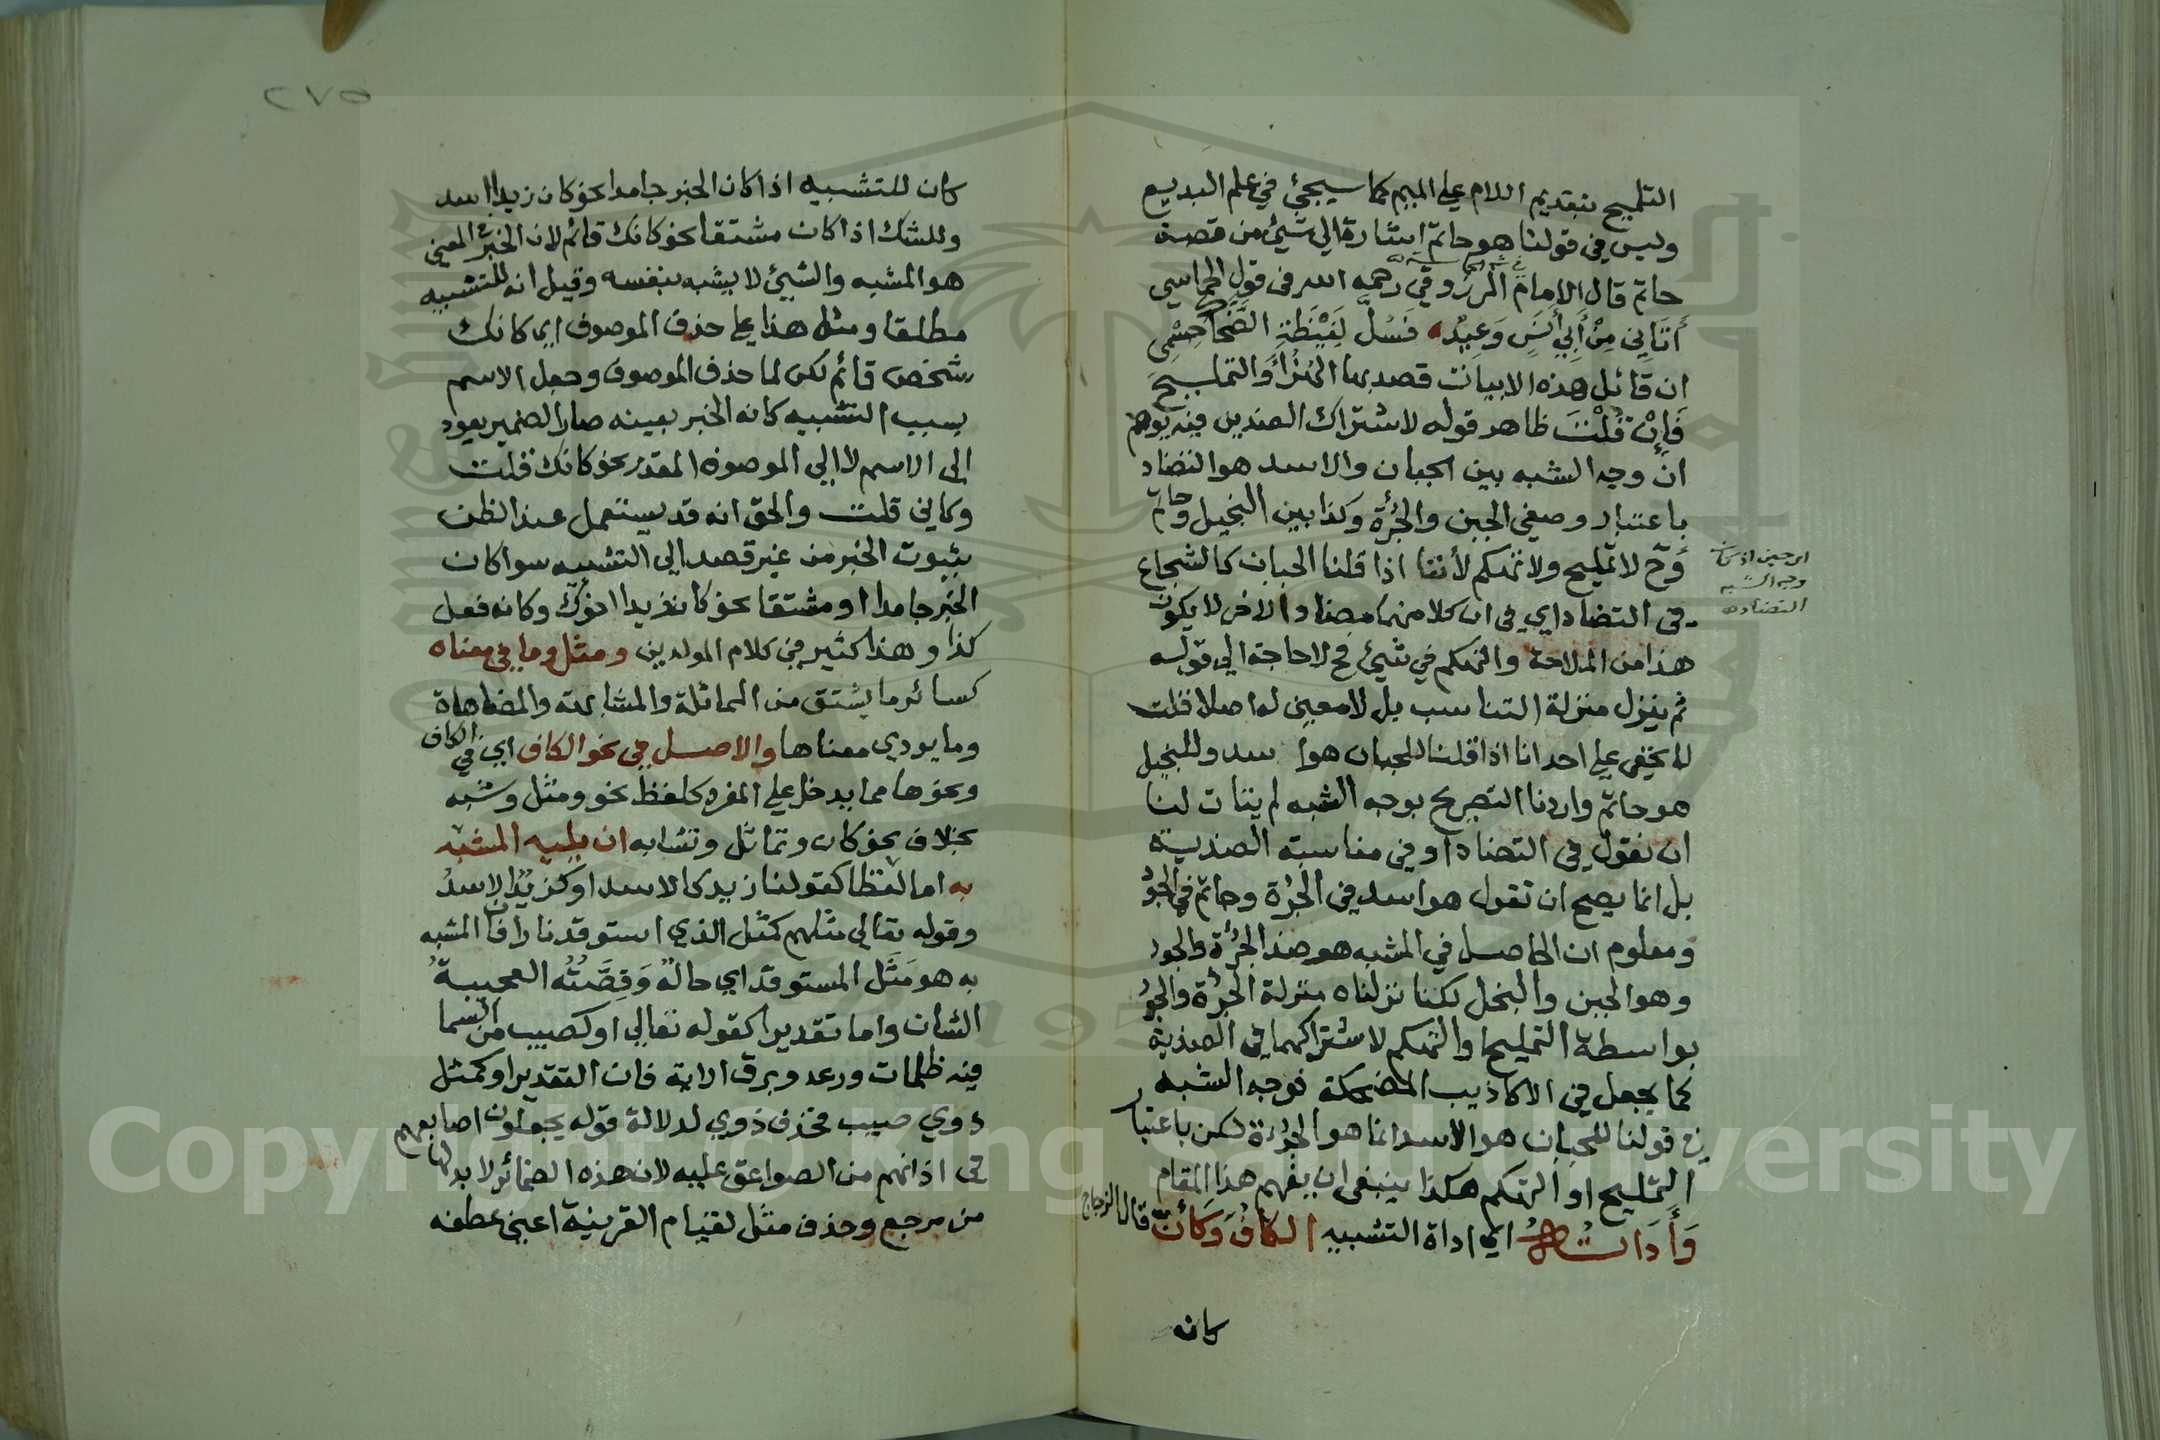 التلميح بتقديم اللام علي الميم كما سيجئ في علم البديع
وليس في قولنا هو حاتم اشارة الي شيئ من قصة
حاتم قال الامام المرزوقي رحمه الله في قول الحماسي
أَتَانِي مِنْ أَبِي أَنَسٍ وَعِيدُ فَسُلَّ لِغَيْظَةِ الضَّحَّاكِ جِسْمِى
ان قائل هذه الابيات قصد بها الهزأ والتمليح
فَإِنْ قُلْتَ ظاهر قوله لاشتراك الضدين فيه يوهم
ان وجه الشبه بين الجبان والاسد هو التضاد
باعتبار وصفي الجبن والجرُة وكذا بين البخيل وحاتم
وَح لا تمليح ولا تهكم لأننا اذا قلنا الجبان كالشجاع
في التضاد اي في ان كلا منهما مضاد الاخر لا يكون
هذا من الملاحة والتهكم في شيئ فح لا حاجة الي قوله
ثم ينزل منزلة التناسب بل لا معنى له اصلا قلت
لا يخفى علي احد انا اذا قلنا للجبان هو اسد وللبخيل
هو حاتم واردنا التصريح بوجه الشبه لم يتات لنا
ان نقول في التضاد او في مناسبة الضدية
بل انما يصح ان نقول هو اسد في الجرُة وحاتم في الجوُد
ومعلوم ان الحاصل في المشبه هو ضد الجرُة والجود
وهو الجبن والبخل لكننا نزلناه منزلة الجرُة والجوُد
بواسطة التمليح او التهكم لاشتراكهما في الضدية
كما يجعل في الاكاذيب المضحكة فوجه الشبه
في قولنا للجبان هو الاسد انما هو الجرُة لكن باعتبار
التمليح او التهكم هكذا ينبغي ان يفهم هذا المقام
وَأَدَاتُهُ اي اداة التشبيه الكافُ وَكَأَنَّ قال الزجاج
كانه
اي حين اذ كان
وجه الشبه
التضاده
٢٧٥
كان للتشبيه اذا كان الخبر جامدا نحو كان زيدا اسد
وللشك اذا كان مشتقا نحو كانك قائم لان الخبر في المعنى
هو المشبه والشيئ لا يشبه بنفسه وقيل انه للتشبيه
مطلقا ومثل هذا علي حذف الموصوف اي كانك
شخص قائم لكن لما حذف الموصوف وجعل الاسم
بسبب التشبيه كانه الخبر بعينه صار الضمير يعود
الي الاسم لا الي الموصوف المقدر نحو كانك قلت
وكاني قلت والحق انه قد يستعمل عند الظن
بثبوت الخبر من غير قصد الي التشبيه سوا كان
الخبر جامدا او مشتقا نحو كان زيدا اخوُك وكانه فعل
كذا وهذا كثير في كلام المولدين ومثل وما في معناه
كسائر ما يشتق من المماثلة والمشابهة والمضاهاة
وما يودي معناها والاصل في نحو الكاف اي في الكاف
ونحوها مما يدخل علي المفرد كلفظ نحو ومثل وشبه
بخلاف نحو كان وتماثل وتشابه ان يليه المشبه
به اما لفظا كقولنا زيد كالاسد او كزيد الاسدُ
وقوله تعالي مثلهم كمثل الذي استوقد نارا فان المشبه
به هو مَثَل المستوقد اي حالهُ وَقِصَّتُه العجيبةُ
الشان واما تقديرا كقوله تعالي او كصيب من السما
فيه ظلمات ورعد وبرق الاية فان التقدير او كمثل
ذوي صيب فحذف ذوي لدلالة قوله يجعلون اصابعهم
في اذانهم من الصواعق عليه لان هذه الضمائر لا بد لها
من مرجع وحذف مثل لقيام القرينة اعني عطفه
Copyright © King Saud University